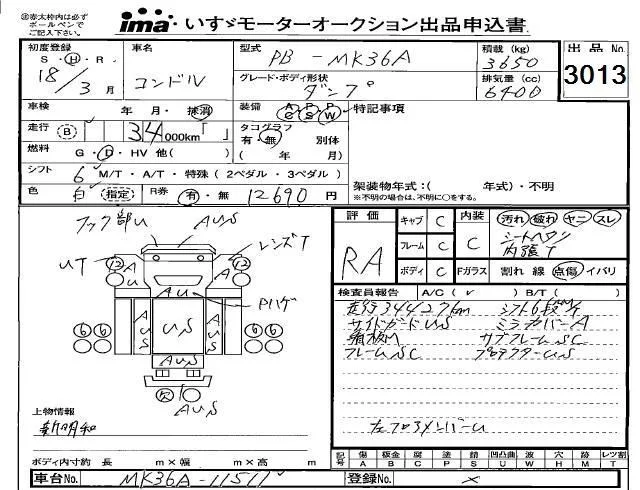 ㊟赤太枠内は必ず
ボールペンで
ご記入下さい。
ima いすゞモーターオークション出品申込書
初度登録 車名 型式 PB - MK36A 積載(kg) 3650 出品No. 3013
S・H・R. 18/3月 コンドル グレード・ボディ形状 ダンプ 排気量(cc) 6400
車検 年 月・抹消 装備 AC PS PW 特記事項
走行 B 34 000km「 」 タコグラフ 有・無 別体
燃料 G・D・HV 他( ) ( 年 月)
シフト 6 M/T・A/T・特殊(2ペダル・3ペダル)
色 白 指定 R券 有・無 12690円
架装物年式:( 年式)・不明
※不明の場合は、不明に○をする。
フック部U AUS
UT レンズT
12 A A 12
AU Pハゲ
AUS US AUS
6 6 6 6
6 6 6 6
AUS
欠
AUS
評価 RA キャブ C 内装 C 汚れ 破れ ヤニ スレ
フレーム C シートヘタリ
内張T
ボディ C Fガラス 割れ 線 点傷 イバリ
検査員報告 A/C( ✓ ) B/T( )
走行34427km シフト6段
サイドガードUS ミラーカバーA
サブフレームSC
フレームSC プロテクターUS
上物情報
新明和
ボディ内寸約 長 m×幅 m×高 m
記号 傷A 板金B 腐C 塗P 錆S 凹凸曲U 凹W 穴H 跡M レツ割T
車台No. MK36A-11511 登録No. ×